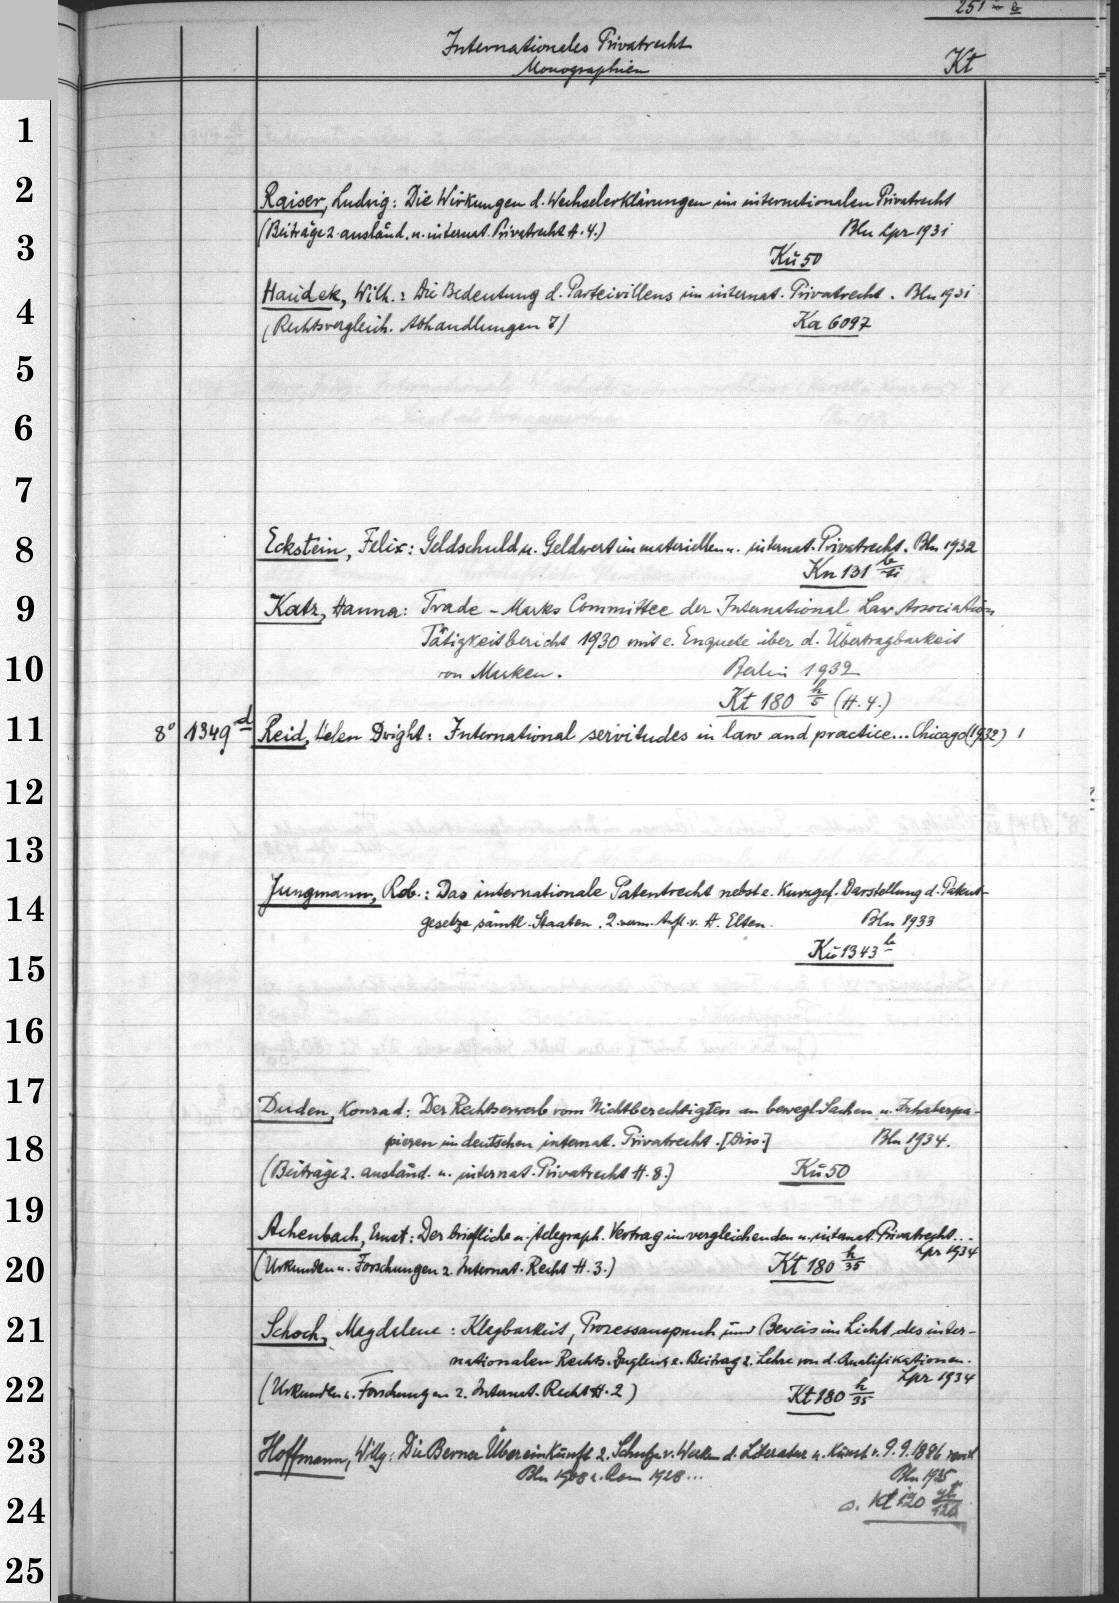 251 - a
Internationales Privatrecht
Monographien Kt
1
2
Raiser, Ludwig: Die Wirkungen d. Wechselerklärungen im internationalen Privatrecht
(Beiträge z. ausländ. u. internat. Privatrecht H. 4.) Bln Lpz 1931
3
Kü 50
Haudek, Wilh.: Die Bedeutung d. Parteiwillens im internat. Privatrecht. Bln 1931
4
(Rechtsvergleich. Abhandlungen 7) Ka 6097
5
6
7
8
Eckstein, Felix: Geldschuld u. Geldwert im materiellen u. internat. Privatrecht. Bln 1932
Kn 131
9
Katz, Hanna: Trade-Marks Committee der International Law Association
Tätigkeitsbericht 1930 mit e. Enquete über d. Übertragbarkeit
10
von Marken. Berlin 1932
Kt 180 h/5 (H. 4.)
11
8° 1349 d Reid, Helen Dwight: International servitudes in law and practice... Chicago (1932) 1
12
13
14
Jungmann, Rob.: Das internationale Patentrecht nebst e. kurzgef. Darstellung d. Patent-
gesetze sämtl. Staaten. 2. verm. Aufl. v. H. Elten. Bln 1933
15
Kü 1343 b
16
17
Duden, Konrad: Der Rechtserwerb vom Nichtberechtigten an bewegl. Sachen u. Inhaberpa-
18
pieren im deutschen internat. Privatrecht. [Diss.] Bln 1934.
(Beiträge z. ausländ. u. internat. Privatrecht H. 8.) Kü 50
19
Achenbach, Ernst: Der briefliche u. telegraph. Vertrag im vergleichenden u. internat. Privatrecht...
Lpz 1934
20
(Urkunden u. Forschungen z. Internat. Recht H. 3.) Kt 180 h/35
21
Schoch, Magdalene: Klagbarkeit, Prozessanspruch und Beweis im Licht des inter-
nationalen Rechts. Zugleich e. Beitrag z. Lehre von d. Qualifikationen.
Lpz 1934
22
(Urkunden u. Forschungen z. Internat. Recht H. 2) Kt 180 h/35
23
Hoffmann, Willy: Die Berner Übereinkunft z. Schutze v. Werken d. Literatur u. Kunst v. 9.9.1886 revid.
Bln 1908 u. Rom 1928... Bln 1935
24
s. Kt 120
25